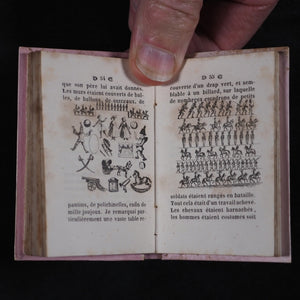 que son père lui avait donnés.
Les murs étaient couverts de bal-
les, de ballons, de cerceaux, de
pantins, de polichinelles, enfin de
mille joujoux. Je remarquai par-
ticulièrement une vaste table re-
couverte d'un drap vert, et sem-
blable à un billard, sur laquelle
de nombreux escadrons de petits
soldats étaient rangés en bataille.
Tout cela était d'un travail achevé.
Les chevaux étaient harnachés,
les hommes étaient costumés soit